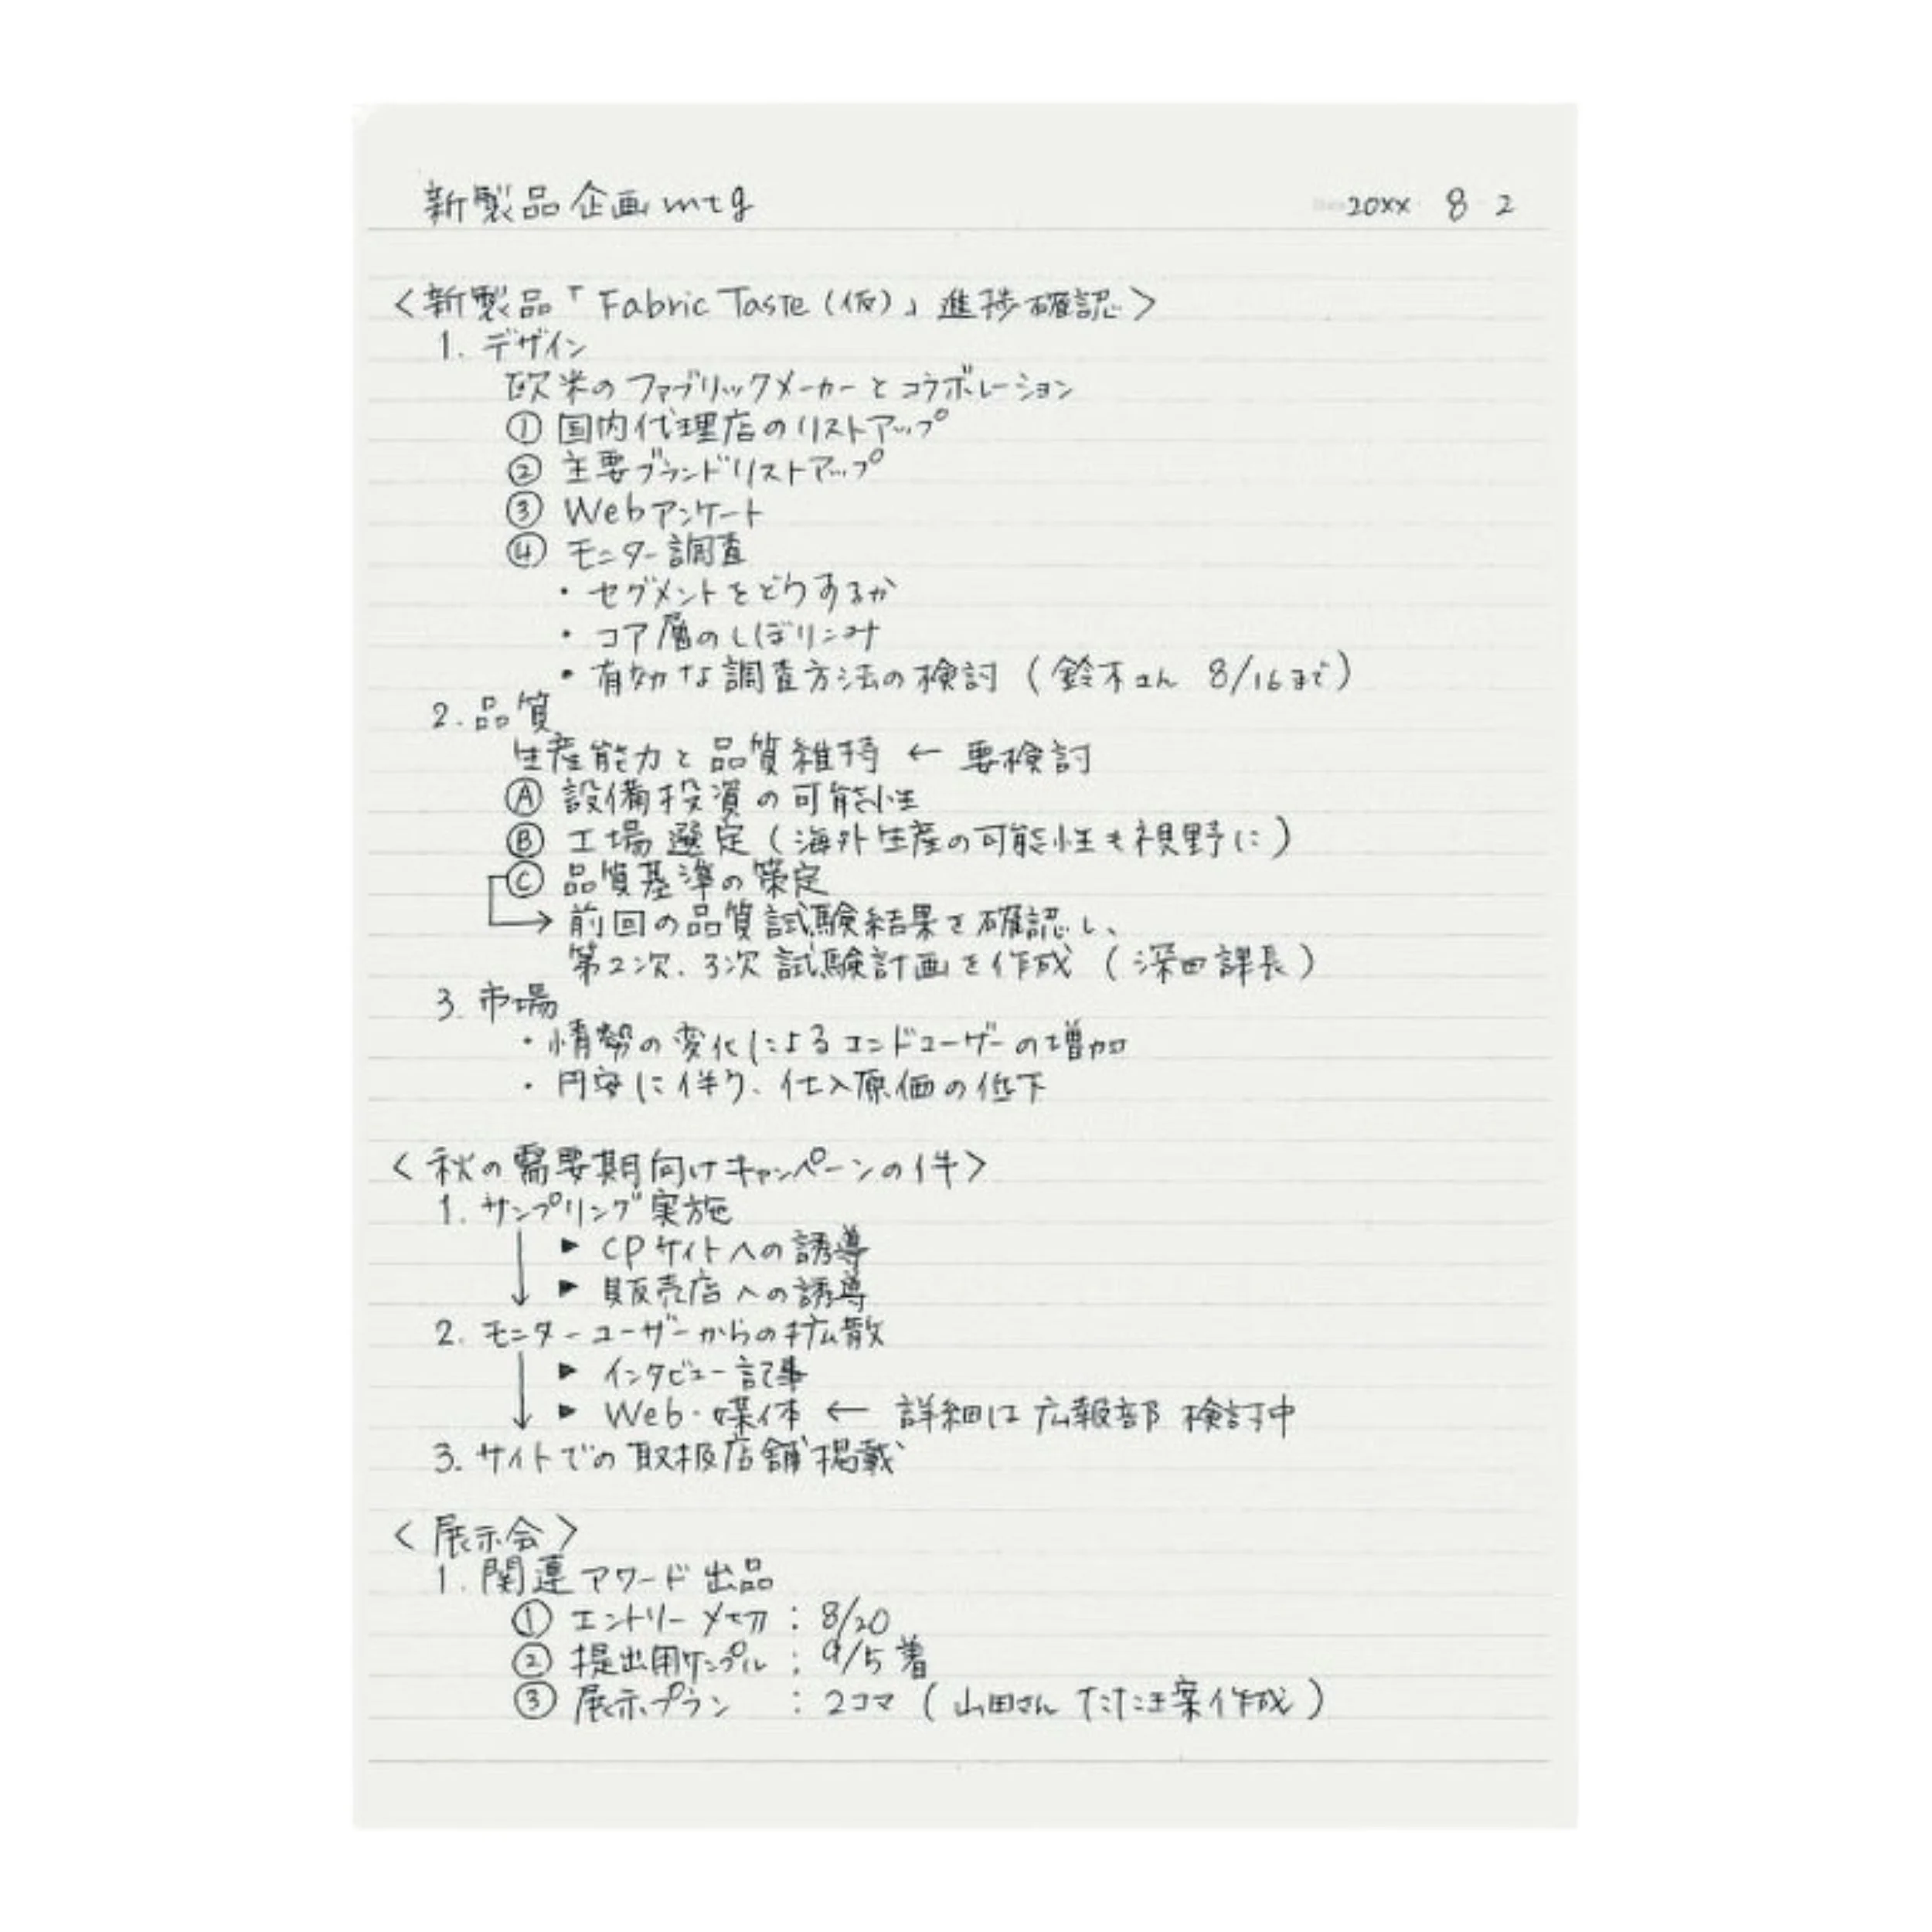 新製品企画mtg 20XX 8 2
〈新製品「Fabric Taste(仮)」進捗確認〉
1. デザイン
欧米のファブリックメーカーとコラボレーション
① 国内代理店のリストアップ
② 主要ブランドリストアップ
③ Webアンケート
④ モニター調査
・セグメントをどうするか
・コア層のしぼりこみ
・有効な調査方法の検討(鈴木さん 8/16まで)
2. 品質
生産能力と品質維持 ← 要検討
Ⓐ 設備投資の可能性
Ⓑ 工場選定(海外生産の可能性も視野に)
Ⓒ 品質基準の策定
→ 前回の品質試験結果を確認し、
第2次、3次試験計画を作成(深田課長)
3. 市場
・情勢の変化によるエンドユーザーの増加
・円安に伴う、仕入原価の低下
〈秋の需要期向けキャンペーンの件〉
1. サンプリング実施
▶ CPサイトへの誘導
▶ 販売店への誘導
2. モニターユーザーからの拡散
▶ インタビュー記事
▶ Web・媒体 ← 詳細は広報部検討中
3. サイトでの取扱店舗掲載
〈展示会〉
1. 関連アワード出品
① エントリー〆切:8/20
② 提出用サンプル:9/5着
③ 展示プラン:2コマ(山田さん たたき案作成)